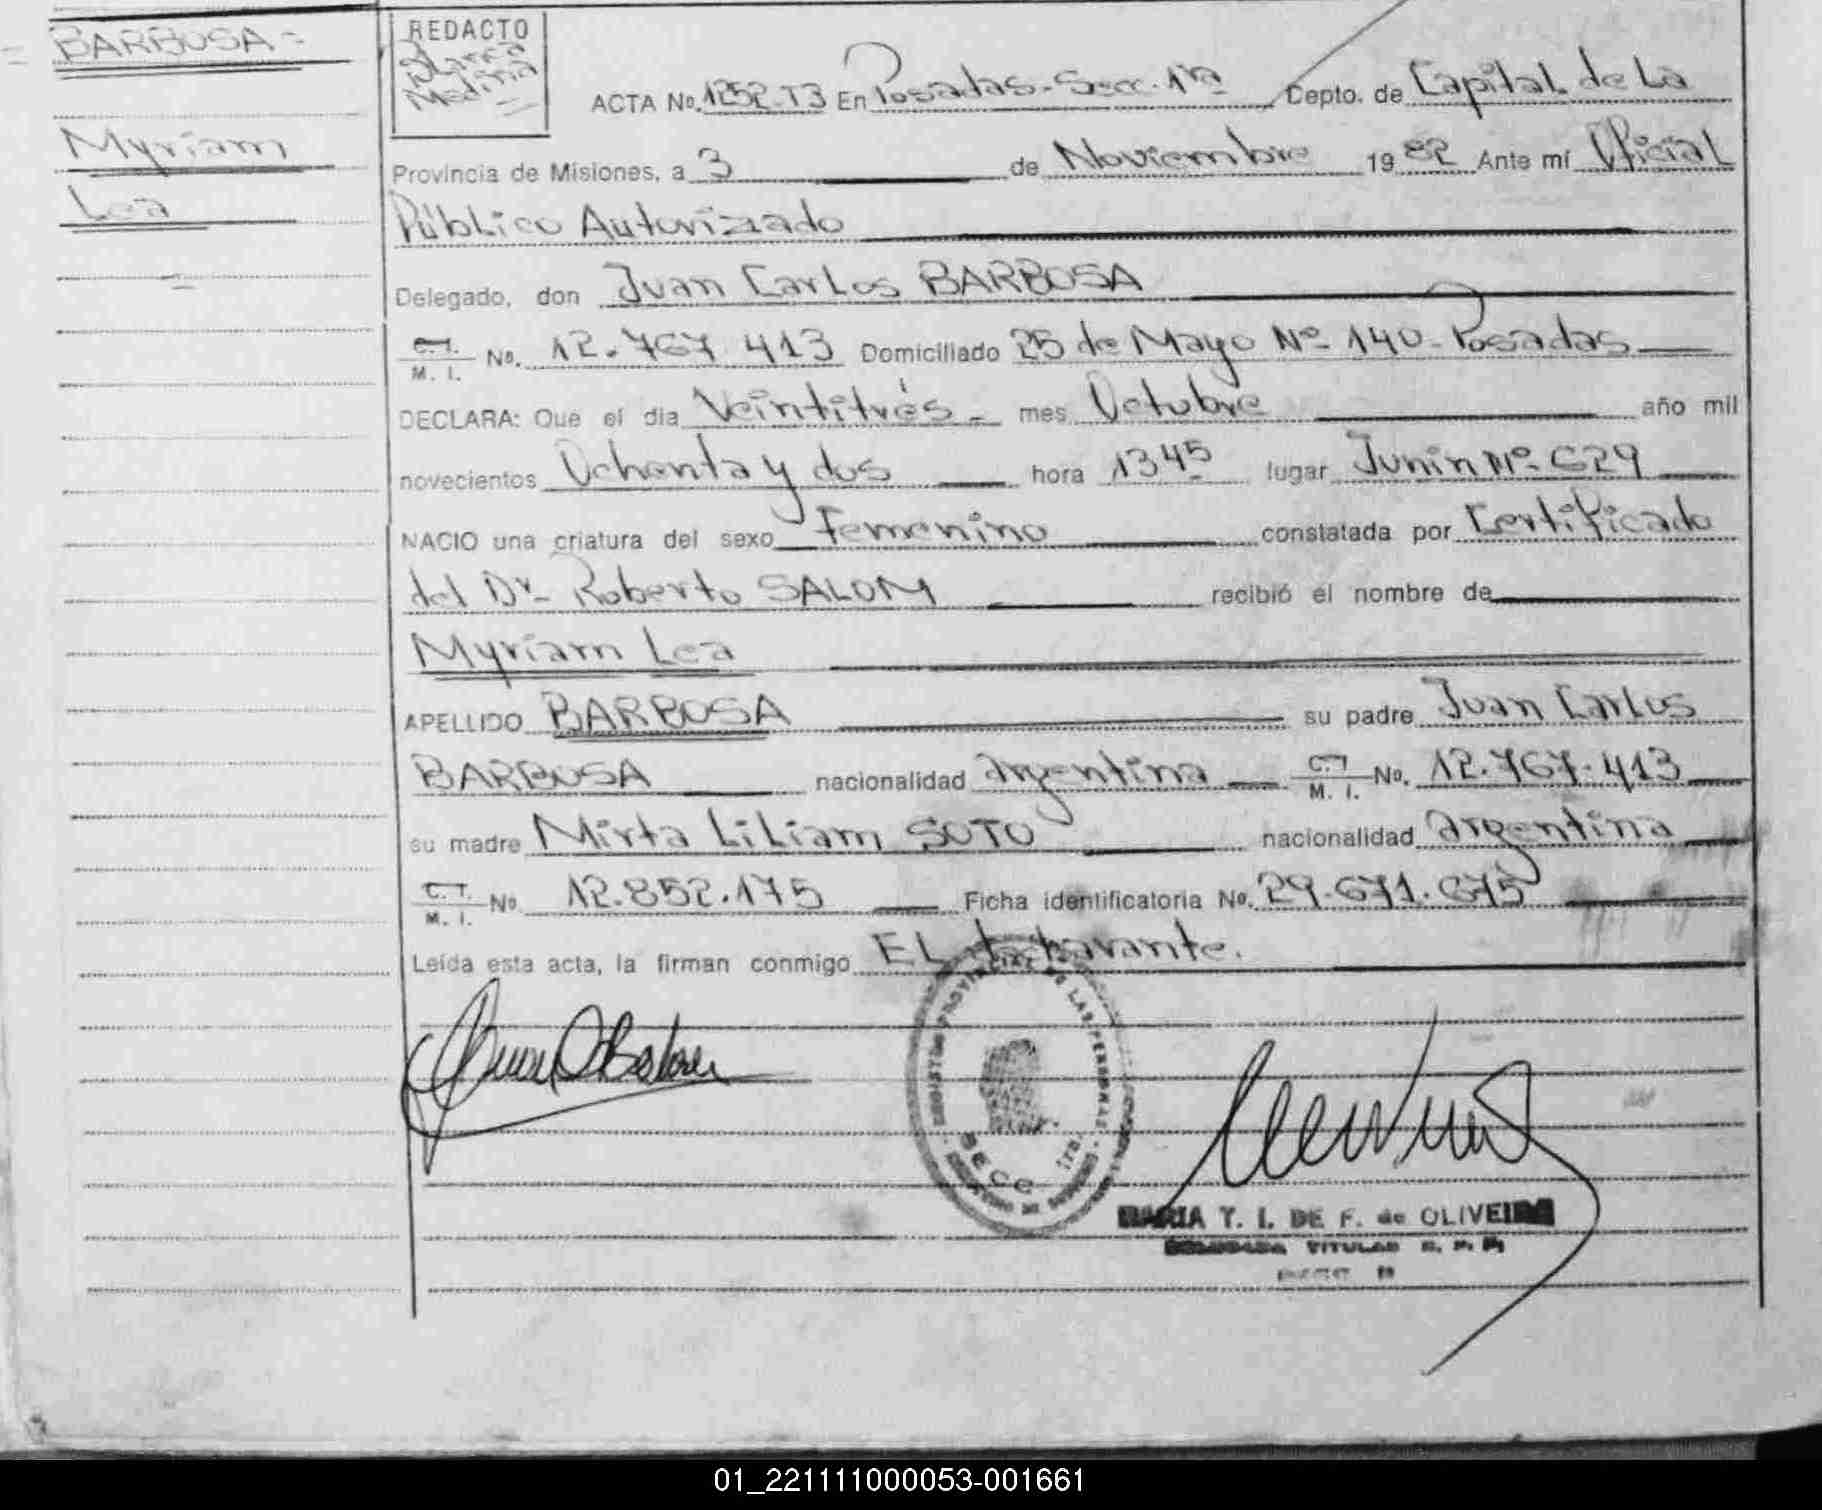 = BARBOSA =
Myriam
Lea
=
REDACTO
Blanca
Medina
ACTA No. 1252-T3 En Posadas-Secc. 1ra Depto. de Capital de La
Provincia de Misiones, a 3 de Noviembre 1982 Ante mí Oficial
Público Autorizado
Delegado, don Juan Carlos BARBOSA
C.I. M. I. No. 12.767.413 Domiciliado 25 de Mayo Nº 140-Posadas
DECLARA: Que el día Veintitrés - mes Octubre año mil
novecientos Ochenta y dos hora 13 45 lugar Junin Nº 629
NACIO una criatura del sexo Femenino constatada por Certificado
del Dr- Roberto SALOM recibió el nombre de
Myriam Lea
APELLIDO BARBOSA su padre Juan Carlos
BARBOSA nacionalidad argentina C.I. M. I. No. 12.767.413
su madre Mirta Liliam SOTO nacionalidad argentina
C.I. M. I. No 12.852.175 Ficha identificatoria No. 29.671.675
Leída esta acta, la firman conmigo EL declarante.
REGISTRO PROVINCIAL DE LAS PERSONAS
SECC. 1ra.
MARIA T. I. DE F. de OLIVEIRA
DELEGADA TITULAR R. P. P.
01_221111000053-001661